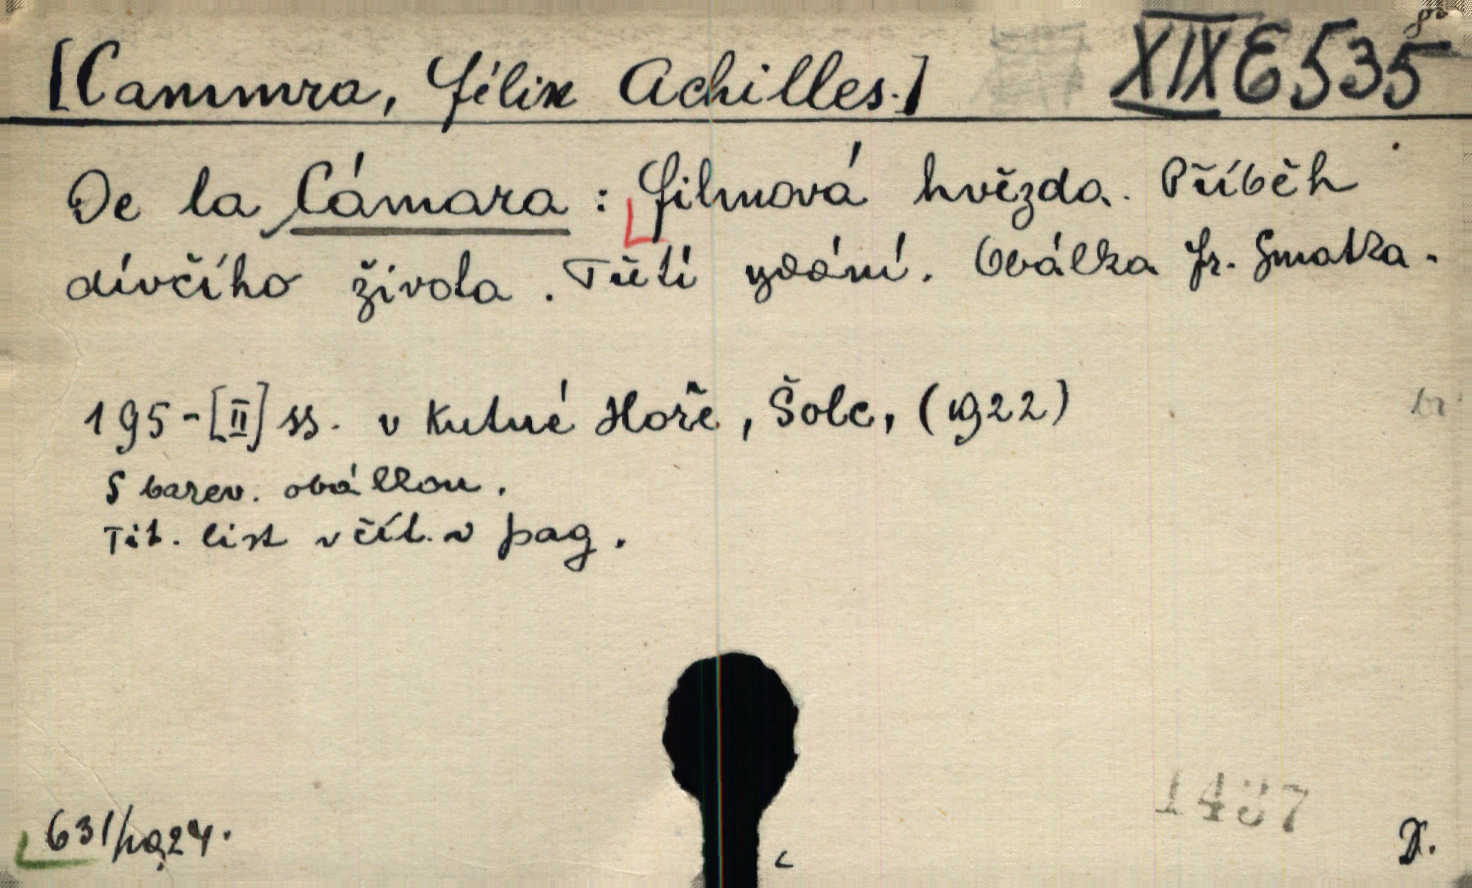 [Cammra, Félix Achilles.] XIX E 535
De la Cámara : Filmová hvězda. Příběh
dívčího života. Třetí vydání. Obálka Fr. Gmatka.
195-[II] ss. v Kutné Hoře, Šolc, (1922)
S barev. obálkou.
Tit. list včít. v pag.
1437
631/1924.
D.